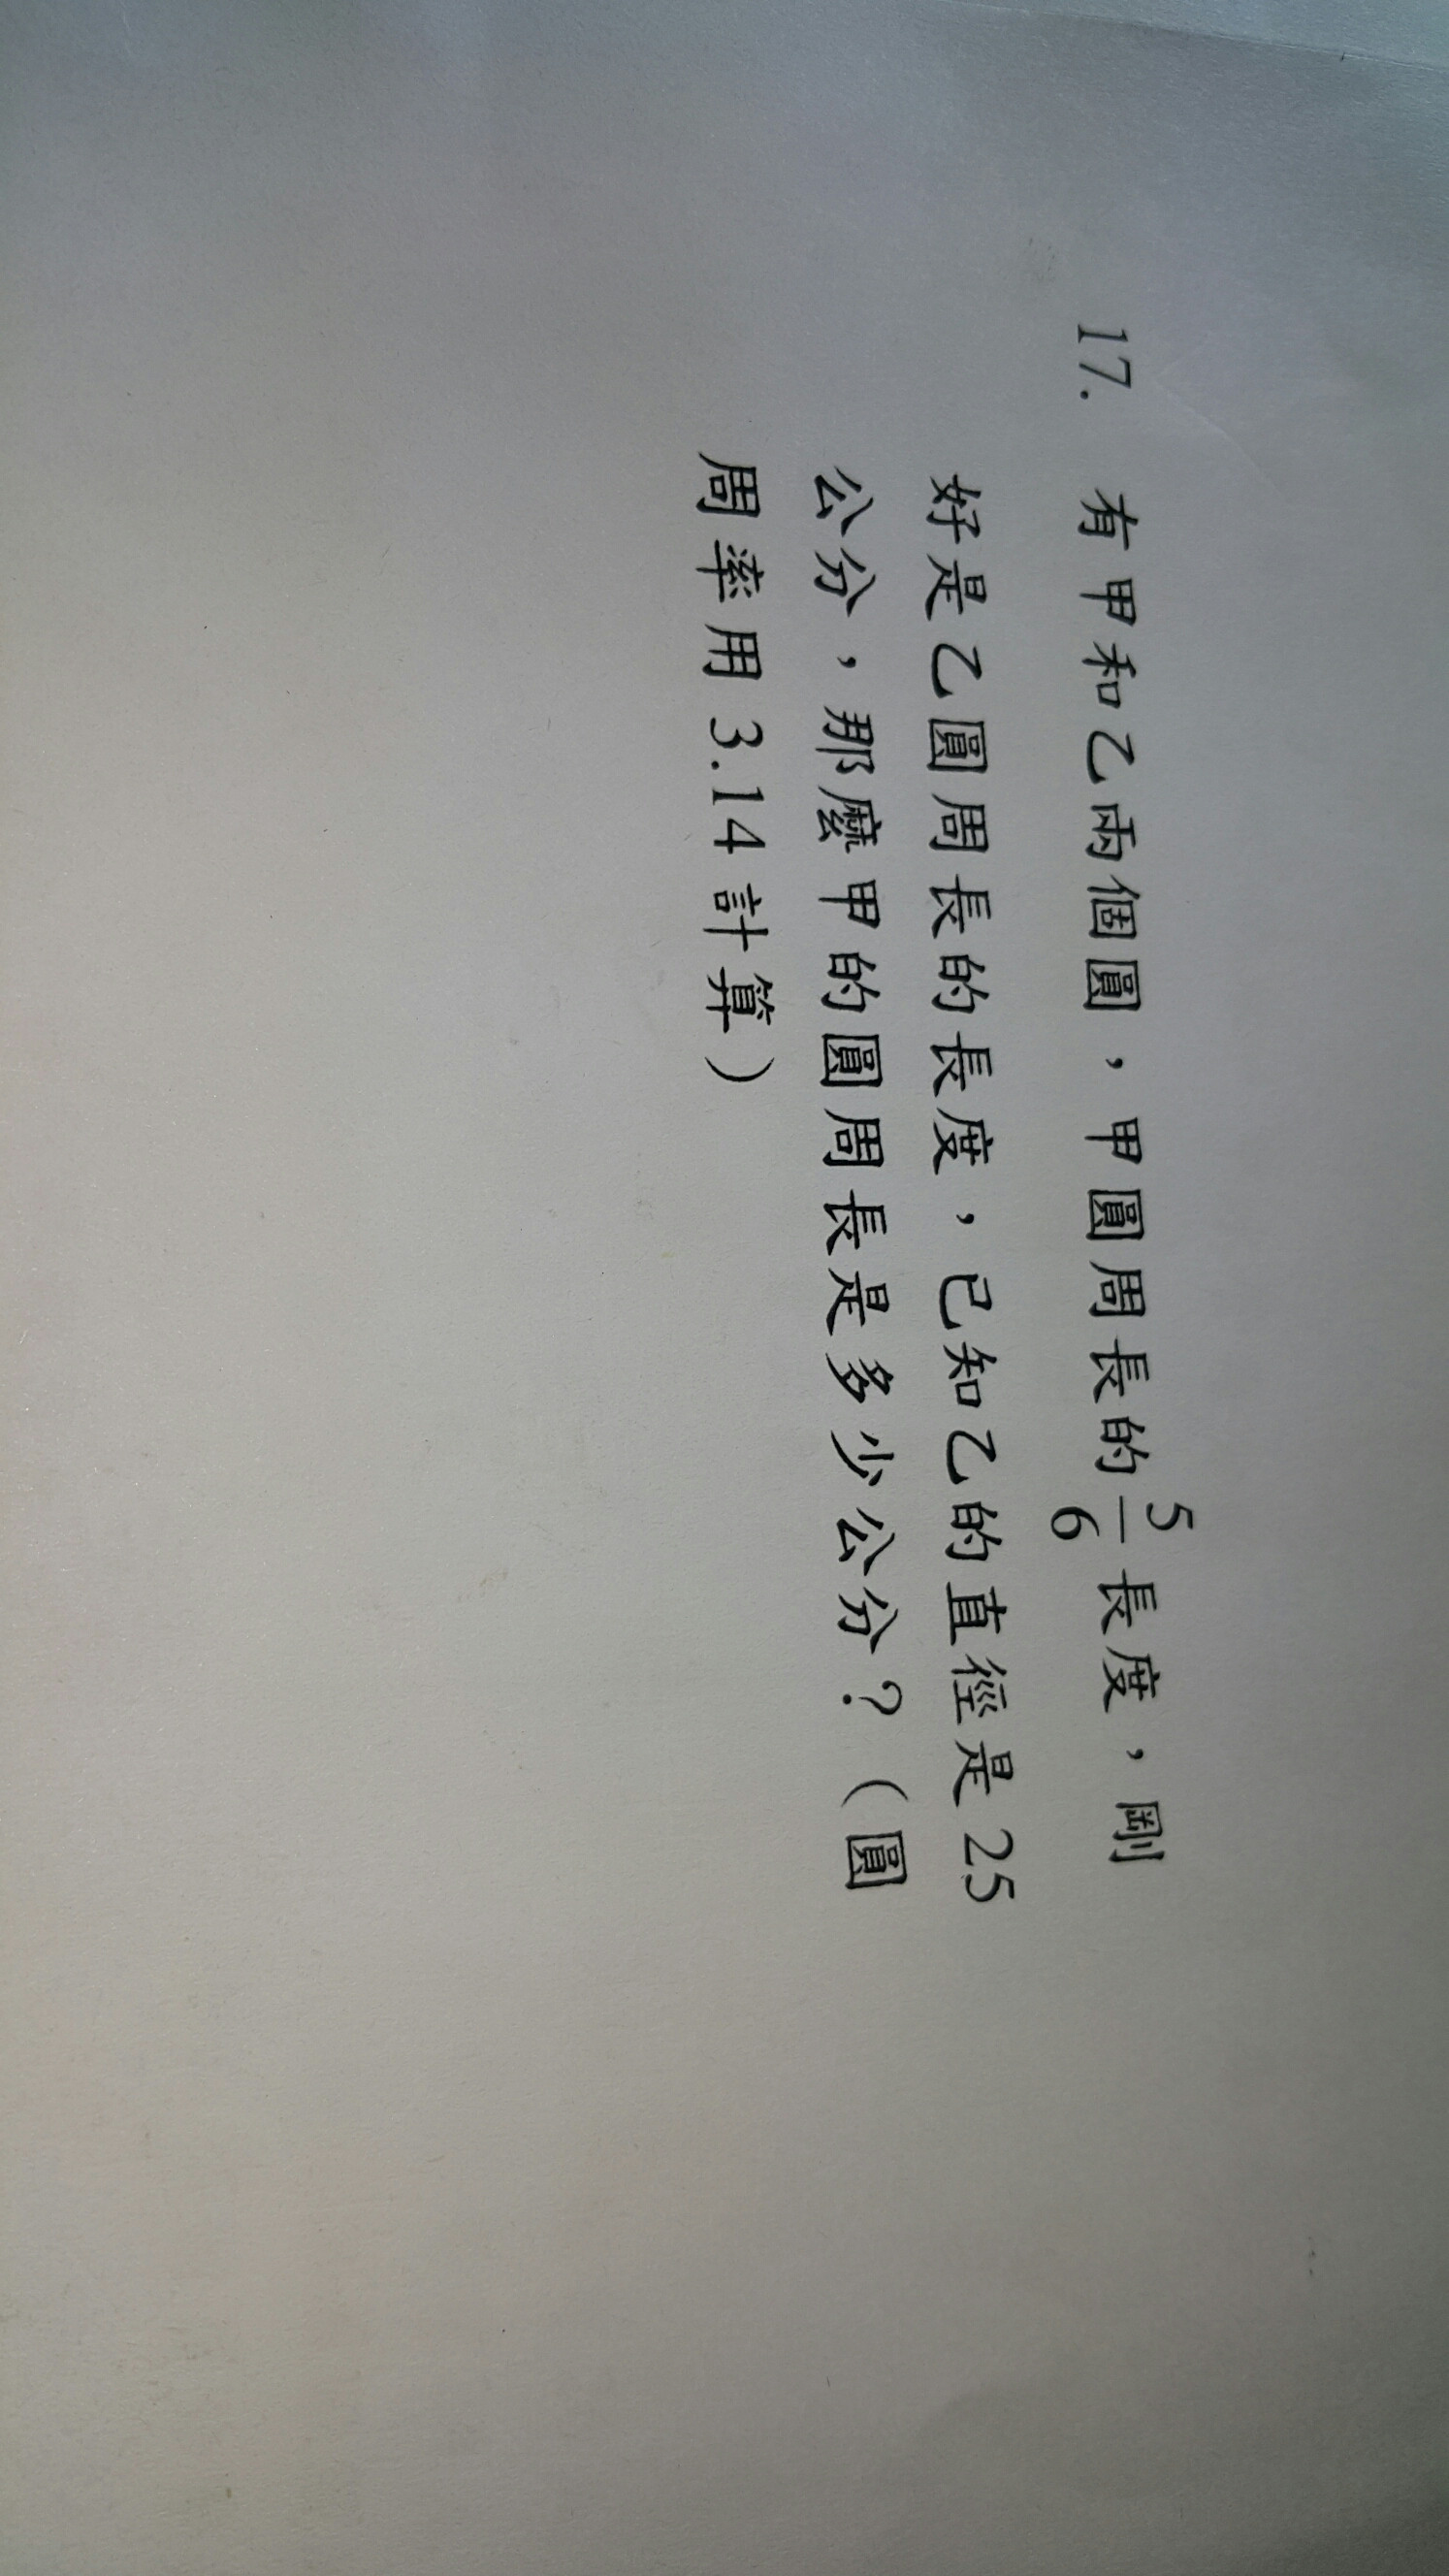 17. 有甲和乙兩個圓，甲圓周長的5/6長度，剛
好是乙圓周長的長度，已知乙的直徑是25
公分，那麼甲的圓周長是多少公分？（圓
周率用3.14計算）